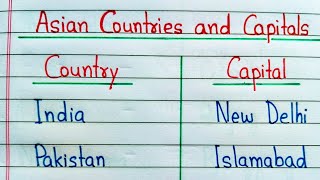 Asian Countries and Capitals
Country Capital
India New Delhi
Pakistan Islamabad